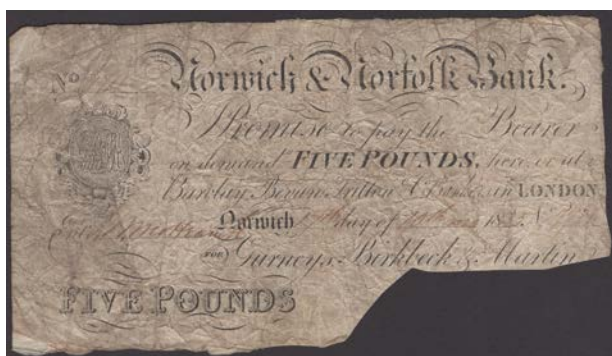 No Norwich & Norfolk Bank.
I Promise to pay the Bearer
on demand FIVE POUNDS, here or at
Barclay Bevan Tritton & in LONDON
Norwich day of 18 N
FOR Gurneys, Birkbeck & Martin
FIVE POUNDS